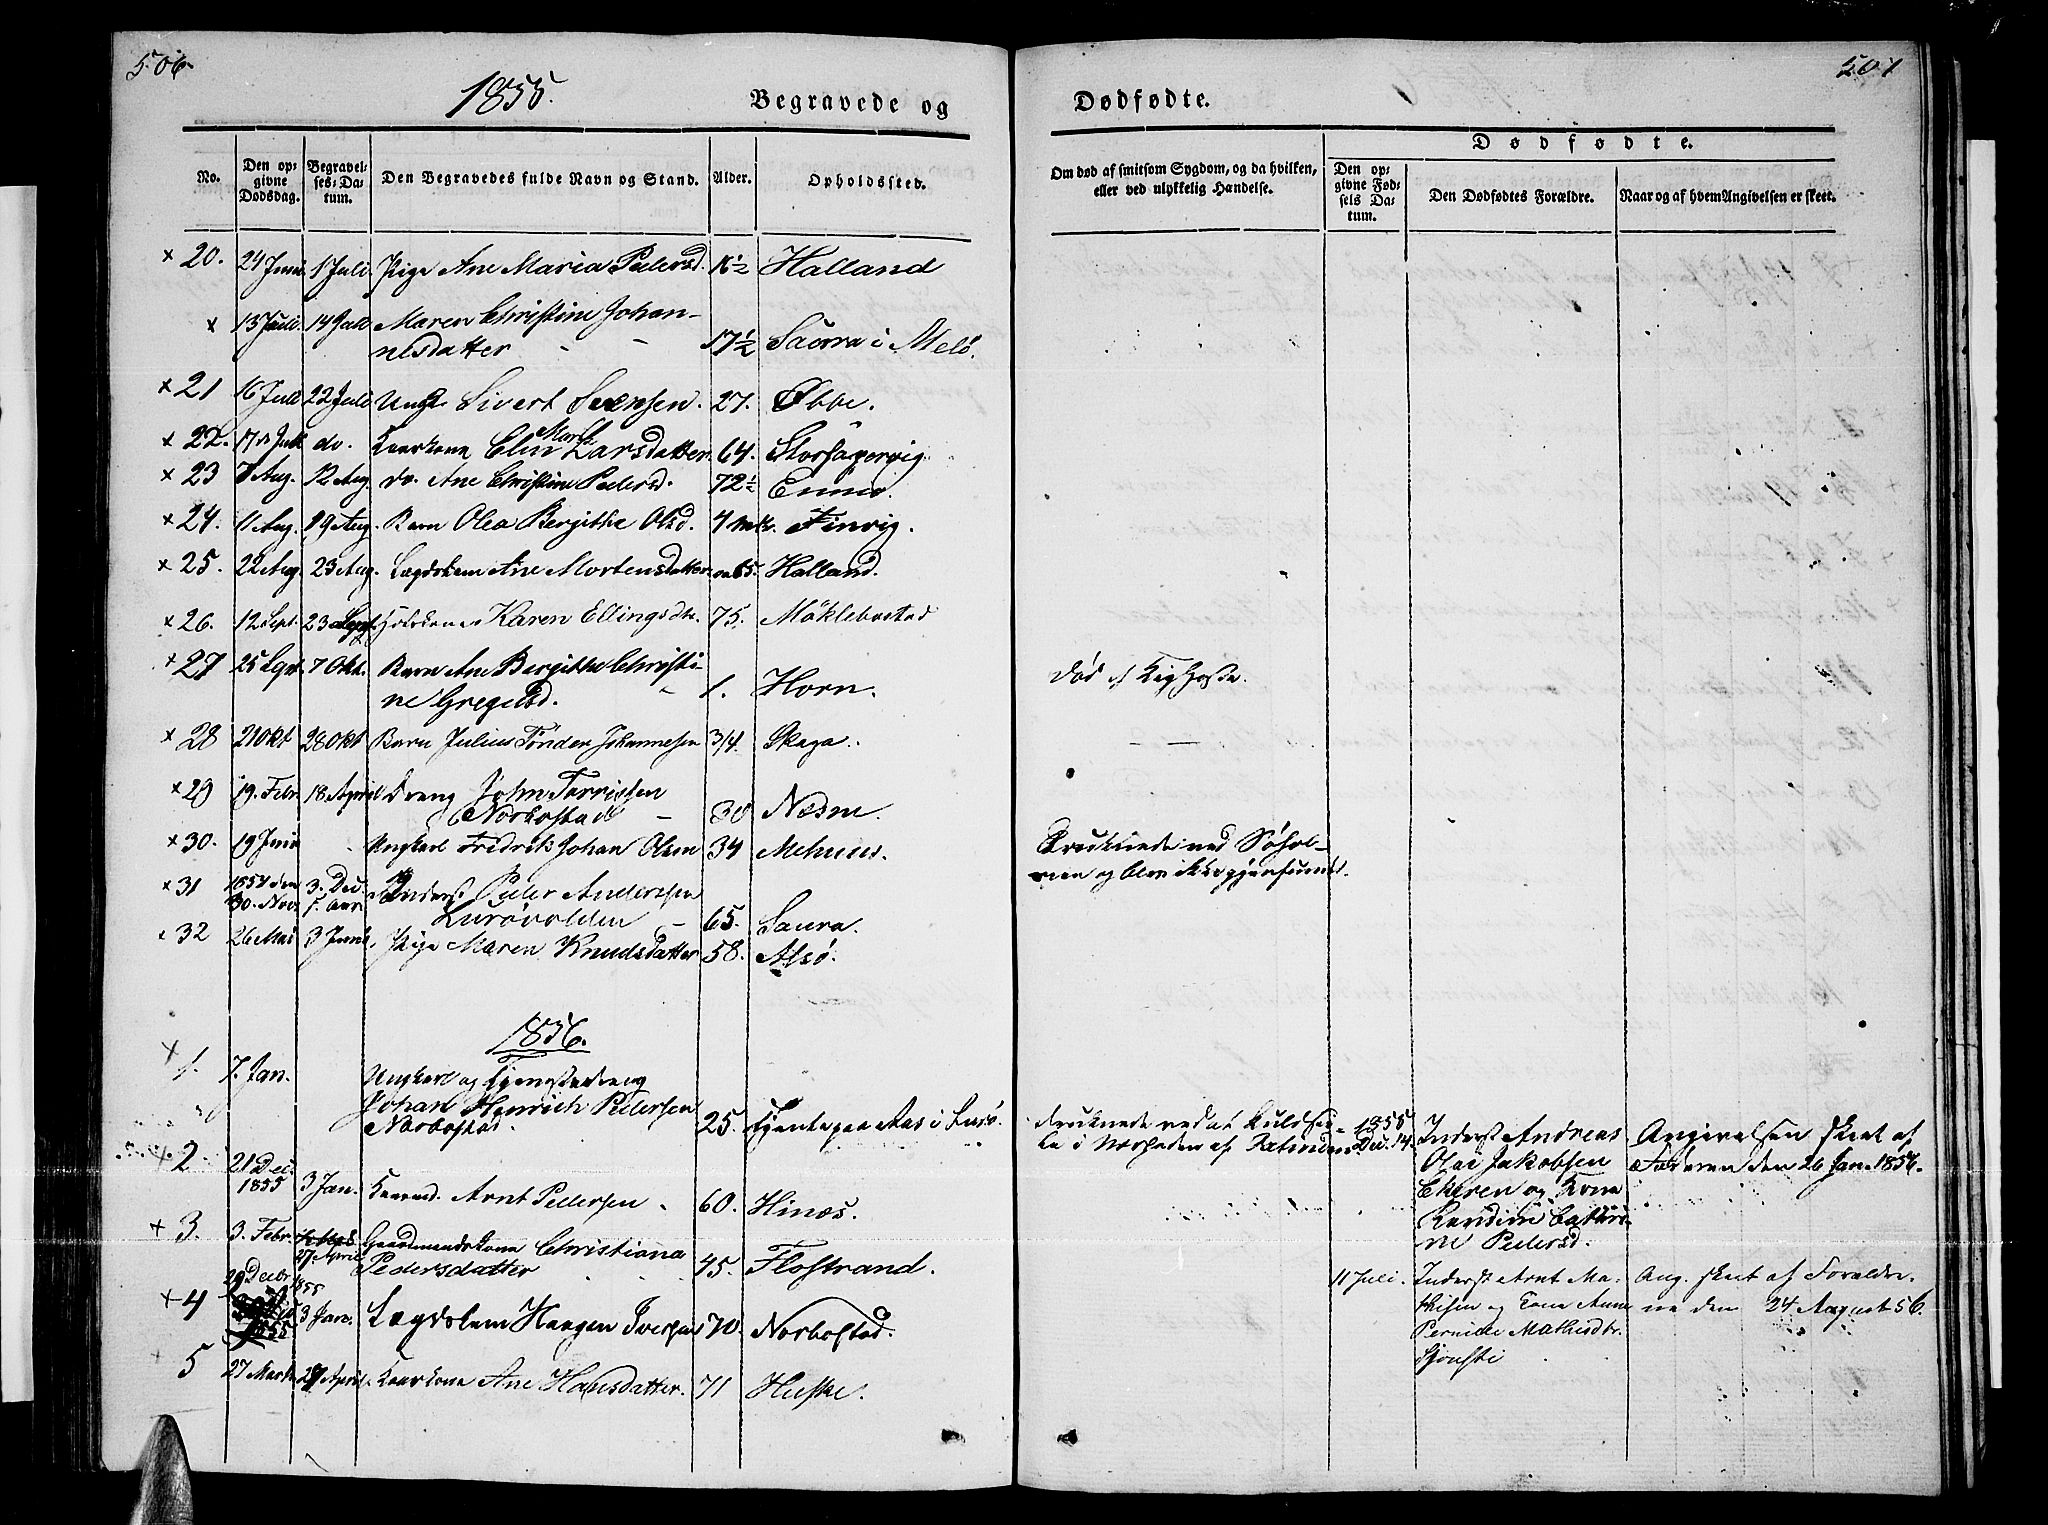 506.
1855.
Begravede og
No.
Den op-
givne
Dødsdag.
Begravel-
ses-Da-
tum.
Den Begravedes fulde Navn og Stand.
Alder.
Opholdssted.
× 20. 24 Juni 1 Juli. Pige Ane Maria Pedersd. 16½ Halland
× 13 Juli 14 Juli Maren Christine Johan-
nesdatter 17½ Saura i Melö.
× 21 16 Juli 22 Juli Ungk. Sivert Svensen. 27. Øbbe.
× 22. 17de Juli do. Kaarkone Elen Marth Larsdatter. 64. Storselsøervig
× 23 7 Aug. 12 Aug. do. Ane Christine Pedersd. 72½
× 24. 11 Aug. 19 Aug. Barn Olea Bergithe Olsd. 4 Mdr. Finvig.
× 25. 22 Aug. 23 Aug. Lægdslem Ane Mortensdatter 65. Halland.
× 26. 12 Sept. 23 Sept. Karen Ellingsdtr. 75. Möklebostad
× 27 25 Sept. 7 Okt. Barn Ane Bergithe Christi-
ne Gregelsd. 1. Horn.
× 28 21 Okt 28 Okt Barn Julius Tönder Johannesen 3/4. Skaga.
× 29 19. Febr. 18 April Dreng John Torrissen
Norbostad 30 Næsne.
× 30. 19 Juni Ungkarl Fredrik Johan Olsen 34 Mehuus.
× 31 1854 den
30. Nov. 3. Dec.
f. Aar Inderst Peder Anderssen
Lurövolden 65. Saura.
× 32 26 Mai 3 Juni. Pige Maren Knudsdatter 58. Alsö.
1856.
× 1. 7. Jan. Ungkarl og Tjenestedreng
Johan Henrich Pedersen
Norbostad. 25. Tjente paa Aas i Lurö.
× 2 21 Dec.
1855 3 Jan. Kaarmd. Arnt Pedersen 60. Hinæs.
× 3. 3. Febr. 27. April Gaardmandskone Christiana
Pedersdatter 45. Flostrand.
× 4 29 Decbr 1855 3 Jan. Lægdslem Haagen Iversen 70. Norbostad.
5 27 Marts 27 April. Kaarkone Ane Hansdatter. 71 Huske.
507
Dødfødte.
Om død af smitsom Sygdom, og da hvilken,
eller ved ulykkelig Hændelse.
Dødfødte.
Den op-
givne Fød-
sels Da-
tum.
Den Dødfødtes Forældre.
Naar og af hvem Angivelsen er skeet.
Död af Kighoste.
— —
Druknede ved
og blev ikke gjenfunden.
druknede ved at Kuldsei-
le i Norfjorden af Ratinden.
1855
Dec. 14.
Inderst Andreas
Olai Jakobsen
Ekeren og Kone
Randine Cathri-
ne Pedersd.
Angivelsen skeet af
Faderen den 26 Jan. 1856.
11 Juli.
Inderst Arnt Ma-
thisen og Kone Anne
Pernille Mathisdtr.
Sjonsti
Ang. skeet af Forældre-
ne den 24 August 56.